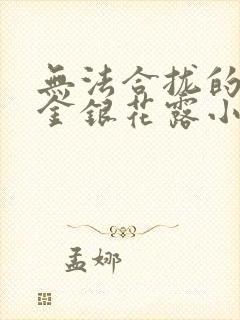 無法合拢的
金銀花露小
孟娜